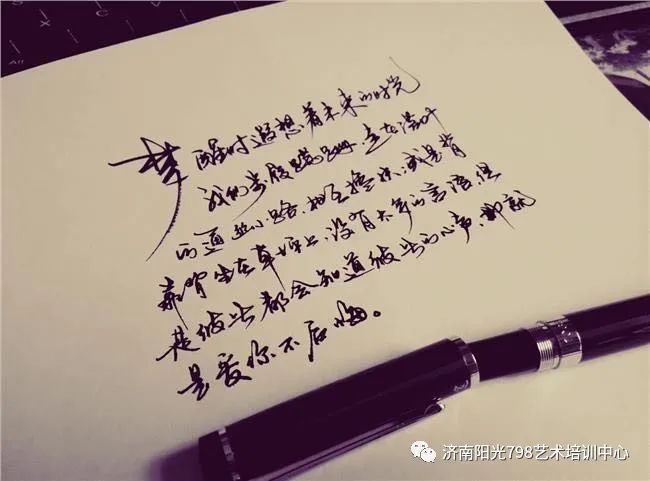 梦醒时遐想着未来的时光
我们步履蹒跚,走在落叶
的通幽小路,相互搀扶,或是背
靠背坐在草坪上,没有太多的言语,但
是彼此都会知道彼此的心声,那就
是爱你不后悔。
济南阳光798艺术培训中心